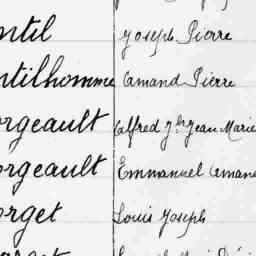 ntil Joseph Pierre
ntilhomme Amand Pierre
orgeault Alfred Jean Marie
orgeault Emmanuel Amand
orget Louis Joseph